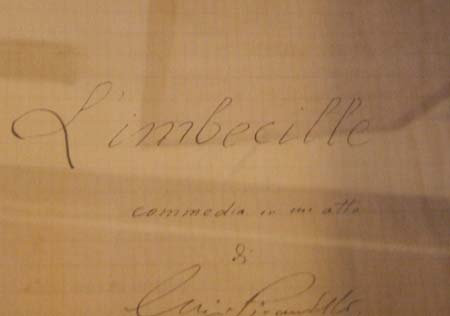 L'imbecille
commedia in un atto
di
Luigi Pirandello